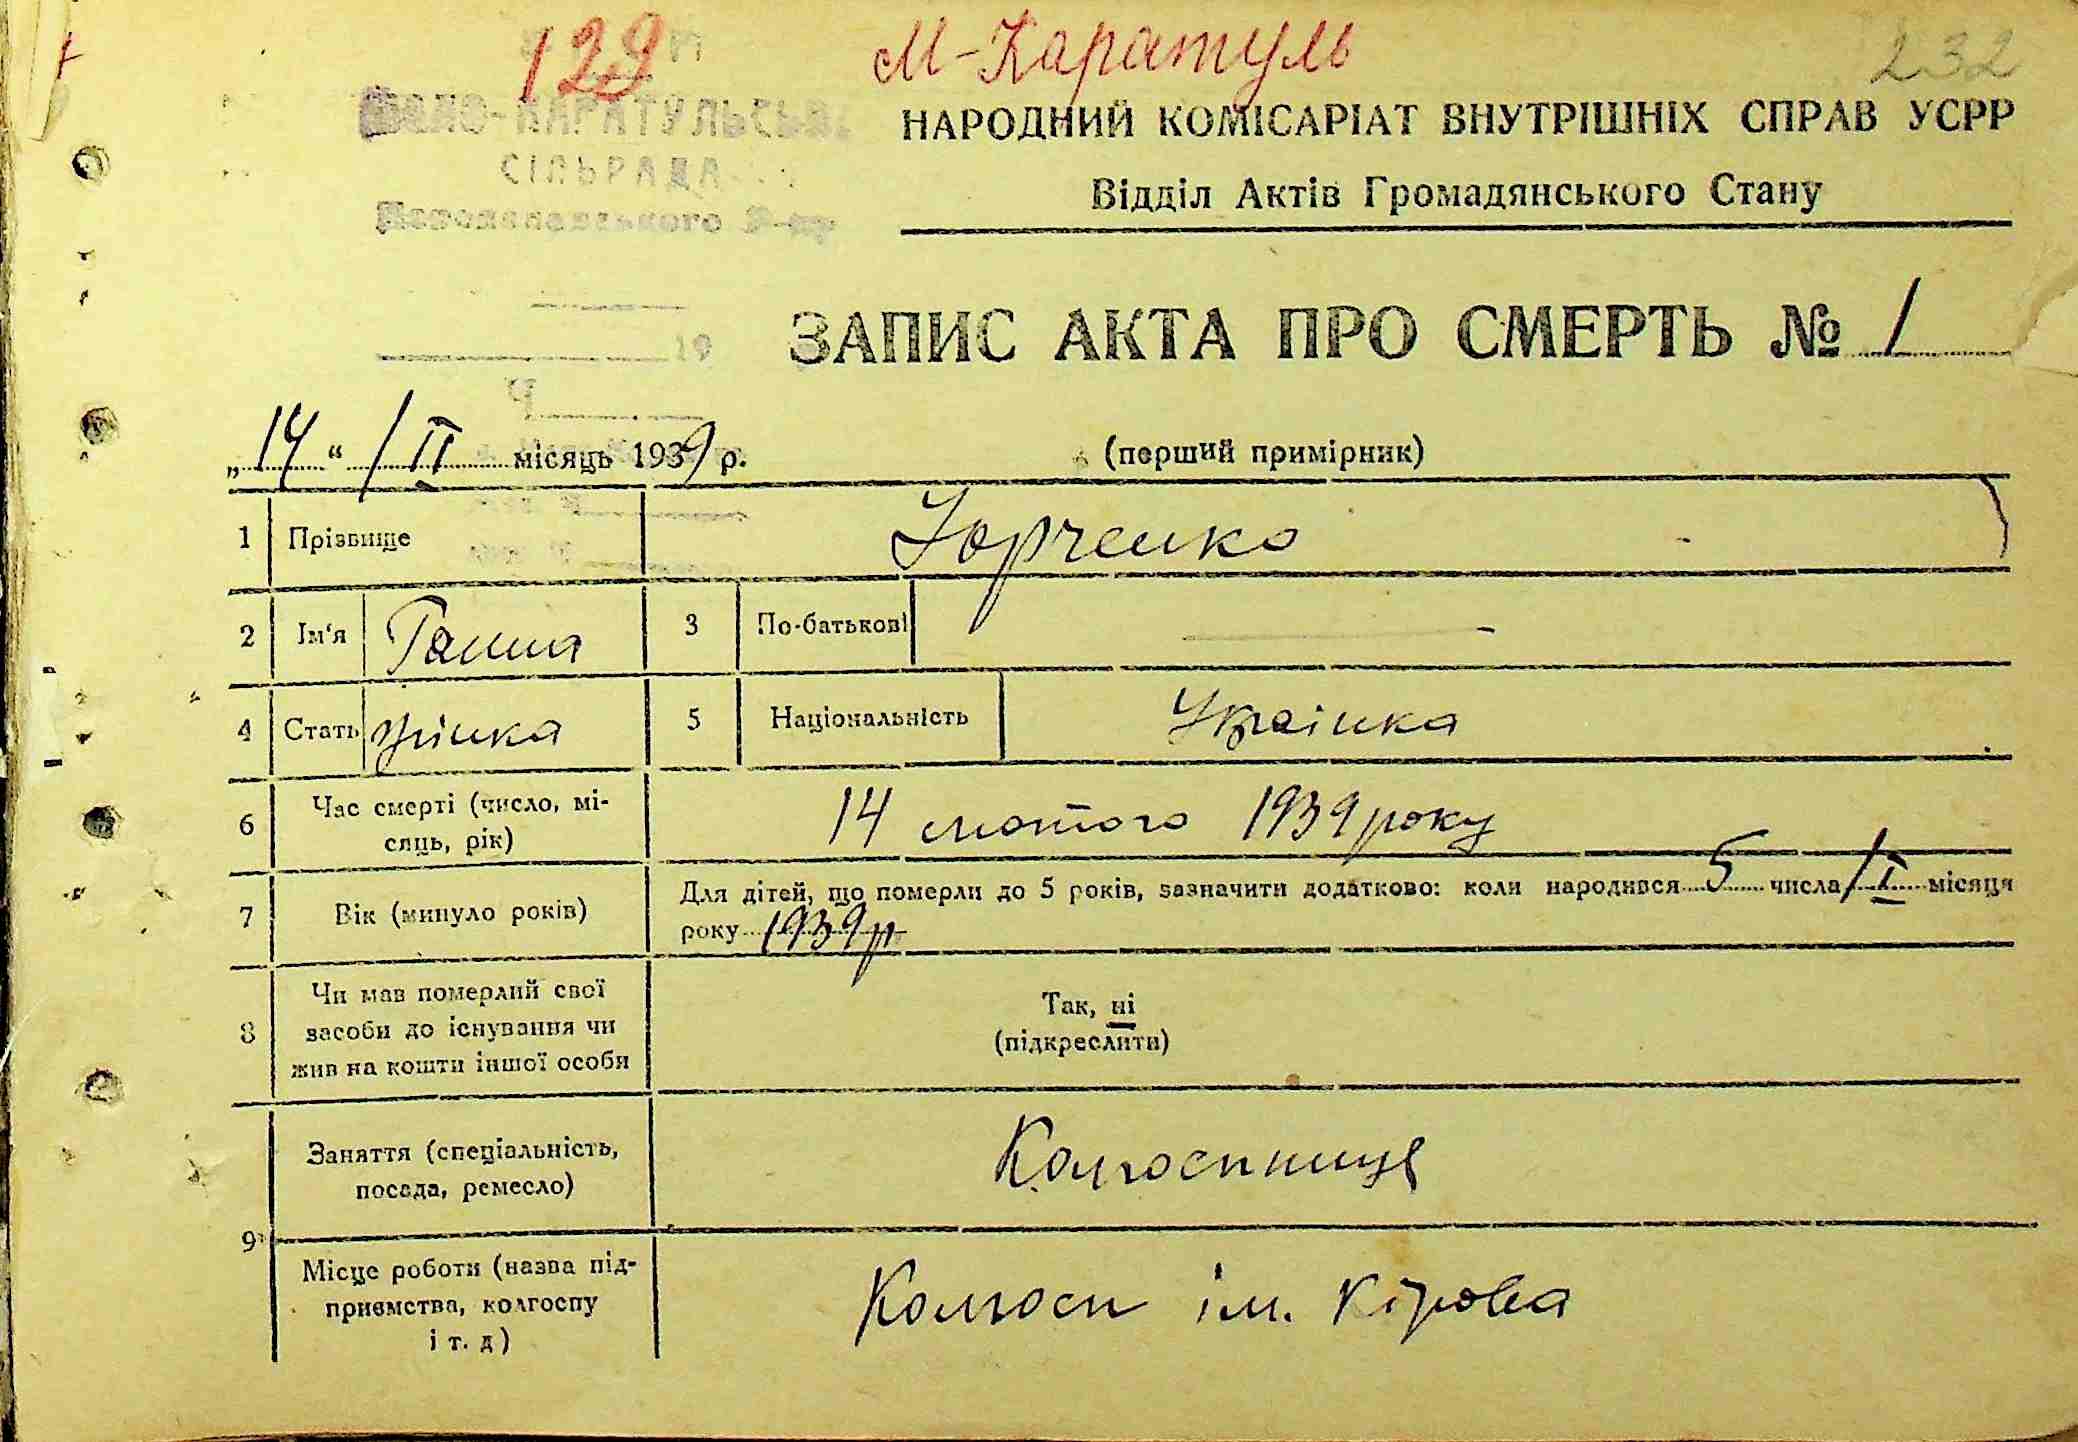 129
М-Каратуль
232
НАРОДНИЙ КОМІСАРІАТ ВНУТРІШНІХ СПРАВ УСРР
КАРАТУЛЬСЬКА
СІЛЬРАДА
Відділ Актів Громадянського Стану
19
ЗАПИС АКТА ПРО СМЕРТЬ № 1
„14“ /II місяць 1939 р. (перший примірник)
1 Прізвище Юрченко
2 Ім'я Ганна 3 По-батькові —
4 Стать жінка 5 Національність Українка
6 Час смерті (число, мі-
сяць, рік)
14 лютого 1939 року
7 Вік (минуло років)
Для дітей, що померли до 5 років, зазначити додатково: коли народився 5 числа /I місяця
року 1939 р
8 Чи мав померлий свої
засоби до існування чи
жив на кошти іншої особи
Так, ні
(підкреслити)
9 Заняття (спеціальність,
посада, ремесло)
Колгоспниця
Місце роботи (назва під-
приємства, колгоспу
і т. д)
Колгосп ім. Кірова